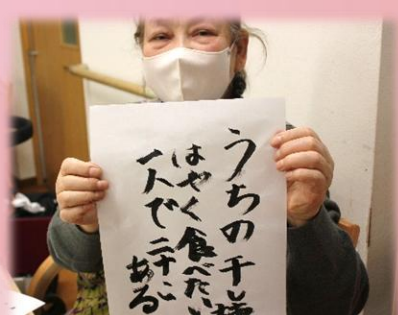 うちの干し
はやく食べたい
一人で二十こある